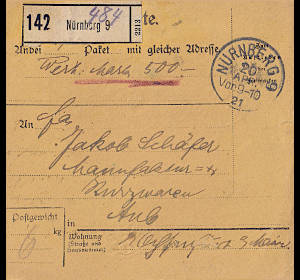 142
Nürnberg 9
2213
484
te.
Paket mit gleicher Adresse
Wert: Mark 500.-
NÜRNBERG 9
20
APR
Vor 9-10
21
An
Fa
Jakob Schäfer
Manufaktur- u
Kurzwaren
Aub
Postgewicht
6 kg
in
Wohnung
(Straße und
Hausnummer)